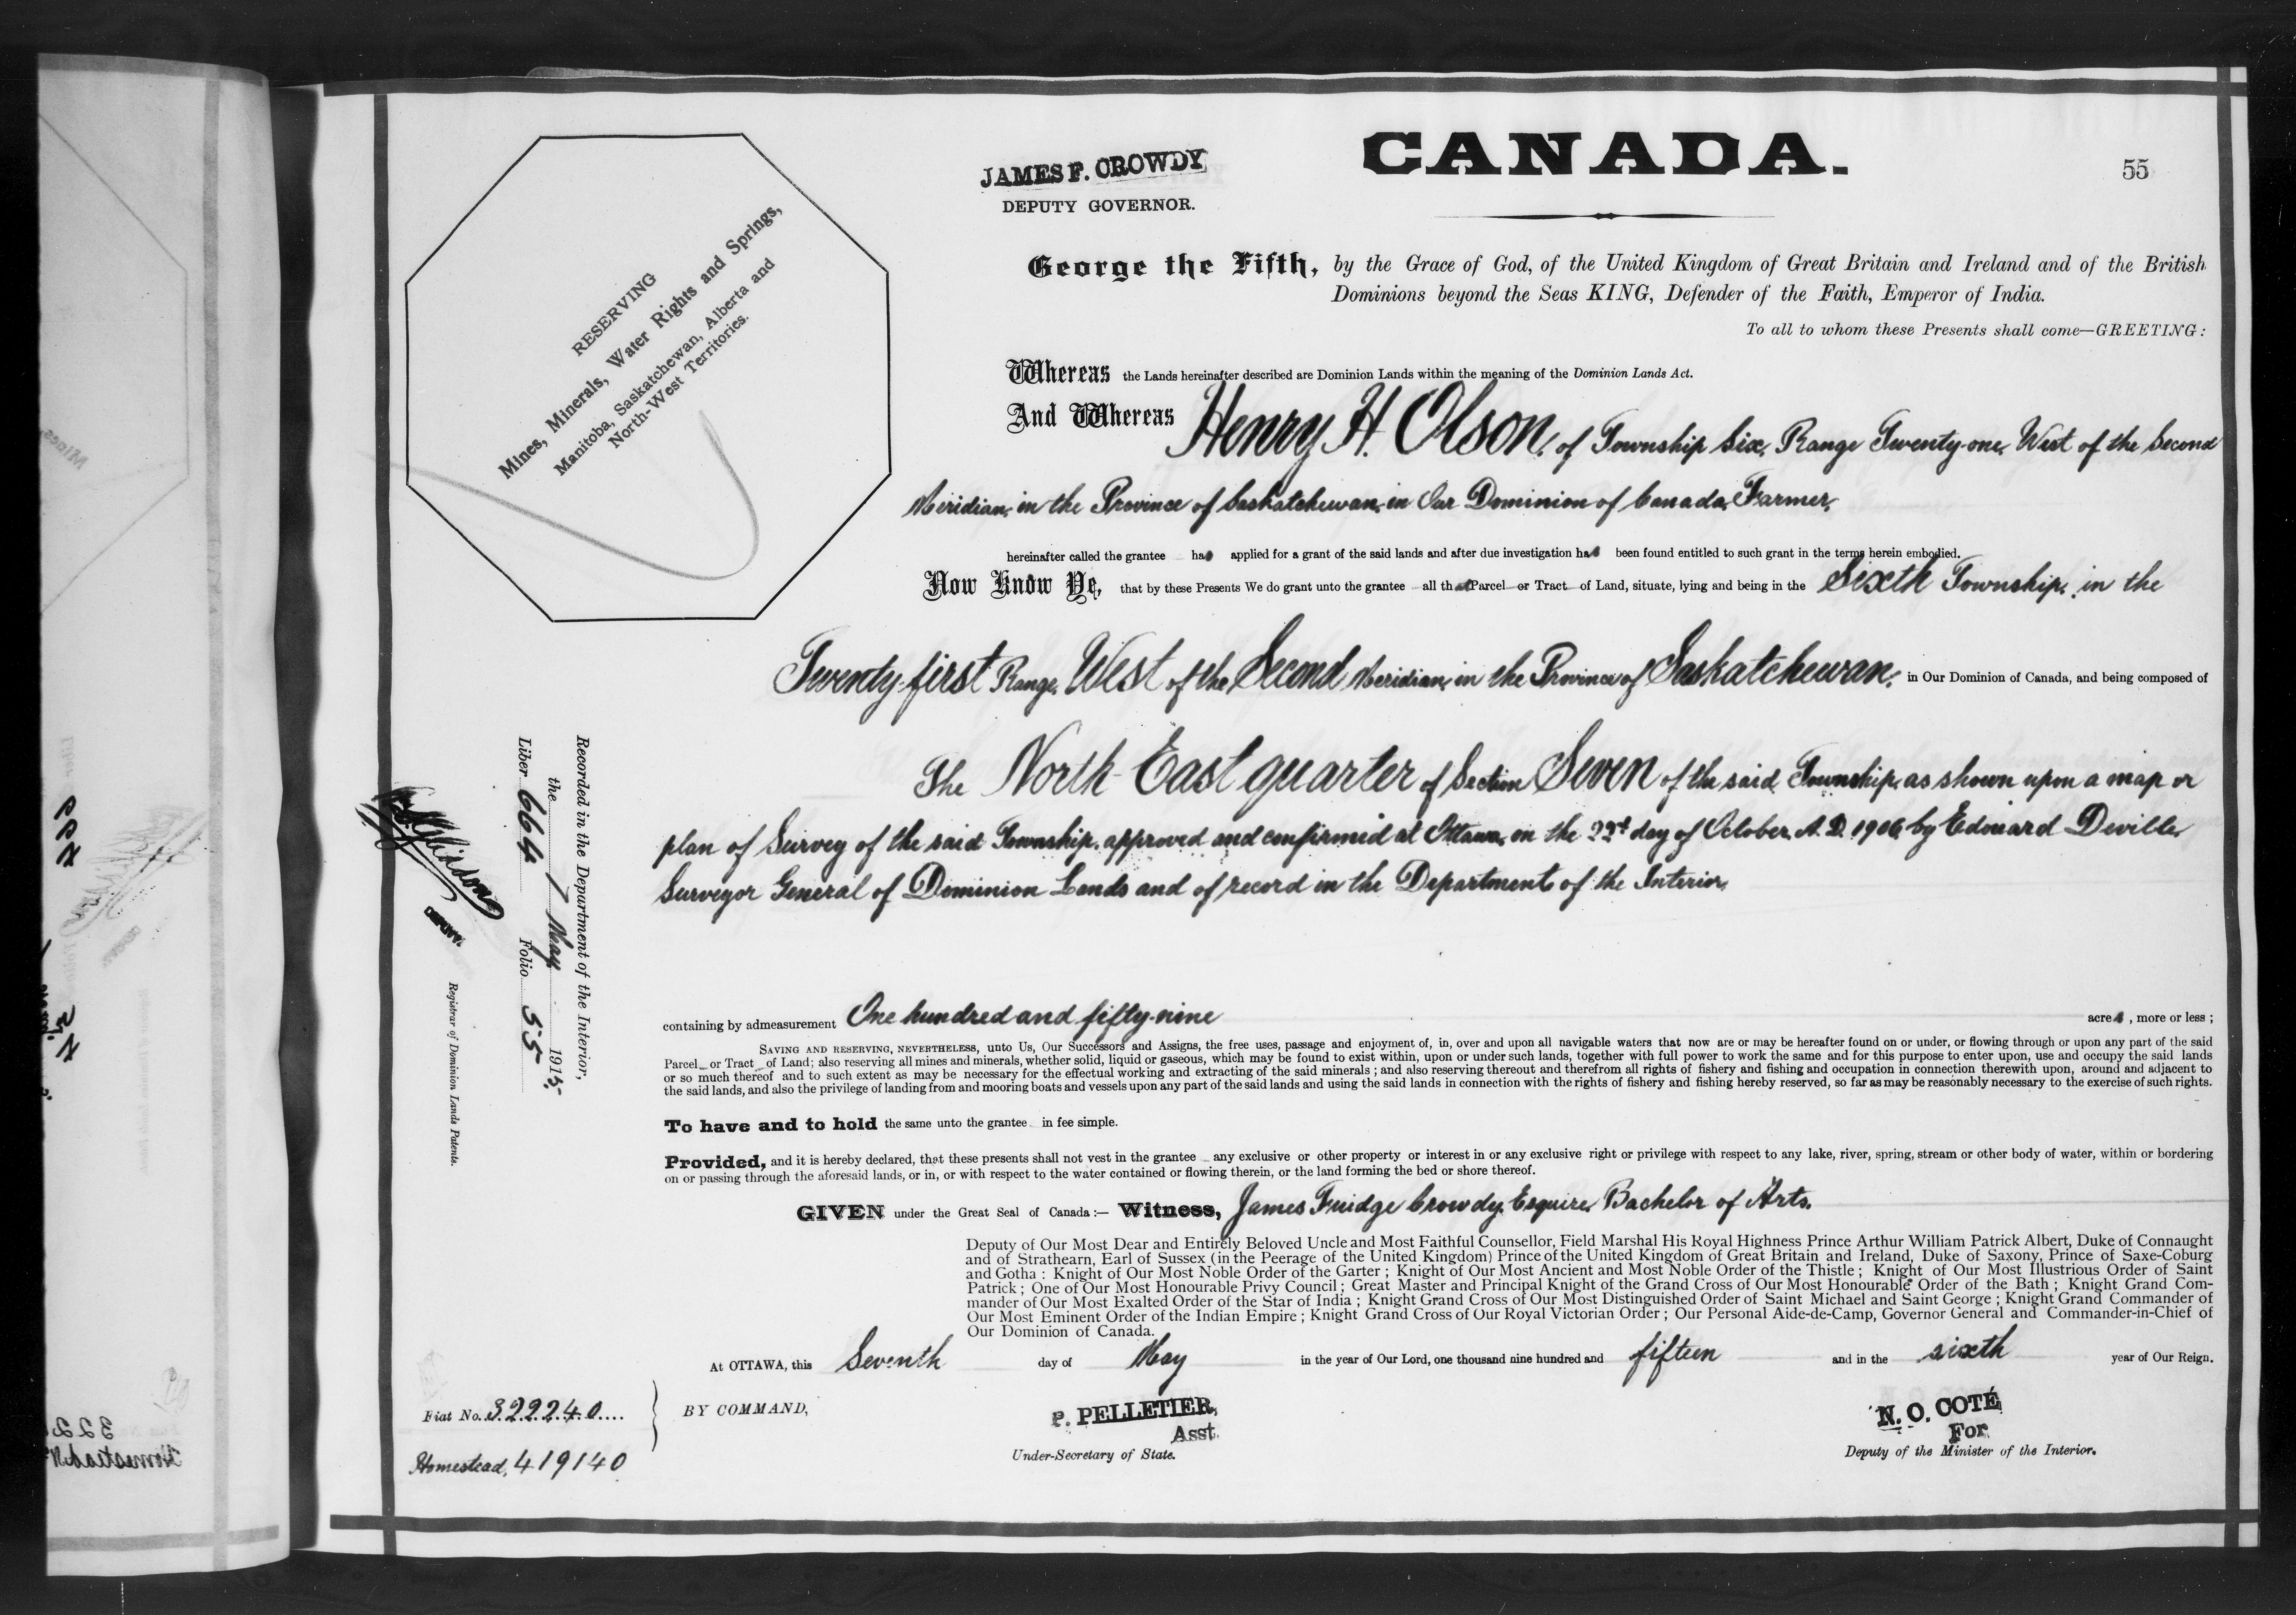 CANADA.
55
JAMES F. CROWDY
DEPUTY GOVERNOR.
RESERVING
Mines, Minerals, Water Rights and Springs,
Manitoba, Saskatchewan, Alberta and
North-West Territories.
George the Fifth, by the Grace of God, of the United Kingdom of Great Britain and Ireland and of the British
Dominions beyond the Seas KING, Defender of the Faith, Emperor of India.
To all to whom these Presents shall come—GREETING:
Whereas the Lands hereinafter described are Dominion Lands within the meaning of the Dominion Lands Act.
And Whereas Henry H. Olson, of Township Six, Range Twenty-one, West of the Second
Meridian, in the Province of Saskatchewan, in Our Dominion of Canada, Farmer,
hereinafter called the grantee has applied for a grant of the said lands and after due investigation has been found entitled to such grant in the terms herein embodied.
Now Know Ye, that by these Presents We do grant unto the grantee all that Parcel or Tract of Land, situate, lying and being in the Sixth Township, in the
Twenty-first Range, West of the Second Meridian, in the Province of Saskatchewan, in Our Dominion of Canada, and being composed of
The North East quarter of Section Seven of the said Township, as shown upon a map or
plan of Survey of the said Township, approved and confirmed at Ottawa, on the 22d day of October, A.D. 1906, by Edouard Deville,
Surveyor General of Dominion Lands and of record in the Department of the Interior,
containing by admeasurement One hundred and fifty-nine acres, more or less;
SAVING AND RESERVING, NEVERTHELESS, unto Us, Our Successors and Assigns, the free uses, passage and enjoyment of, in, over and upon all navigable waters that now are or may be hereafter found on or under, or flowing through or upon any part of the said
Parcel or Tract of Land; also reserving all mines and minerals, whether solid, liquid or gaseous, which may be found to exist within, upon or under such lands, together with full power to work the same and for this purpose to enter upon, use and occupy the said lands
or so much thereof and to such extent as may be necessary for the effectual working and extracting of the said minerals; and also reserving thereout and therefrom all rights of fishery and fishing and occupation in connection therewith upon, around and adjacent to
the said lands, and also the privilege of landing from and mooring boats and vessels upon any part of the said lands and using the said lands in connection with the rights of fishery and fishing hereby reserved, so far as may be reasonably necessary to the exercise of such rights.
To have and to hold the same unto the grantee in fee simple.
Provided, and it is hereby declared, that these presents shall not vest in the grantee any exclusive or other property or interest in or any exclusive right or privilege with respect to any lake, river, spring, stream or other body of water, within or bordering
on or passing through the aforesaid lands, or in, or with respect to the water contained or flowing therein, or the land forming the bed or shore thereof.
GIVEN under the Great Seal of Canada:— Witness, James Fuidge Crowdy, Esquire, Bachelor of Arts,
Deputy of Our Most Dear and Entirely Beloved Uncle and Most Faithful Counsellor, Field Marshal His Royal Highness Prince Arthur William Patrick Albert, Duke of Connaught
and of Strathearn, Earl of Sussex (in the Peerage of the United Kingdom) Prince of the United Kingdom of Great Britain and Ireland, Duke of Saxony, Prince of Saxe-Coburg
and Gotha: Knight of Our Most Noble Order of the Garter; Knight of Our Most Ancient and Most Noble Order of the Thistle; Knight of Our Most Illustrious Order of Saint
Patrick; One of Our Most Honourable Privy Council; Great Master and Principal Knight of the Grand Cross of Our Most Honourable Order of the Bath; Knight Grand Com-
mander of Our Most Exalted Order of the Star of India; Knight Grand Cross of Our Most Distinguished Order of Saint Michael and Saint George; Knight Grand Commander of
Our Most Eminent Order of the Indian Empire; Knight Grand Cross of Our Royal Victorian Order; Our Personal Aide-de-Camp, Governor General and Commander-in-Chief of
Our Dominion of Canada.
At OTTAWA, this Seventh day of May in the year of Our Lord, one thousand nine hundred and fifteen and in the sixth year of Our Reign.
BY COMMAND,
P. PELLETIER,
Asst.
Under-Secretary of State.
N. O. COTÉ
For
Deputy of the Minister of the Interior.
Fiat No. 322240
Homestead, 419140
Recorded in the Department of the Interior,
the 7 May 1915.
Liber 664 Folio 55
Registrar of Dominion Lands Patents.